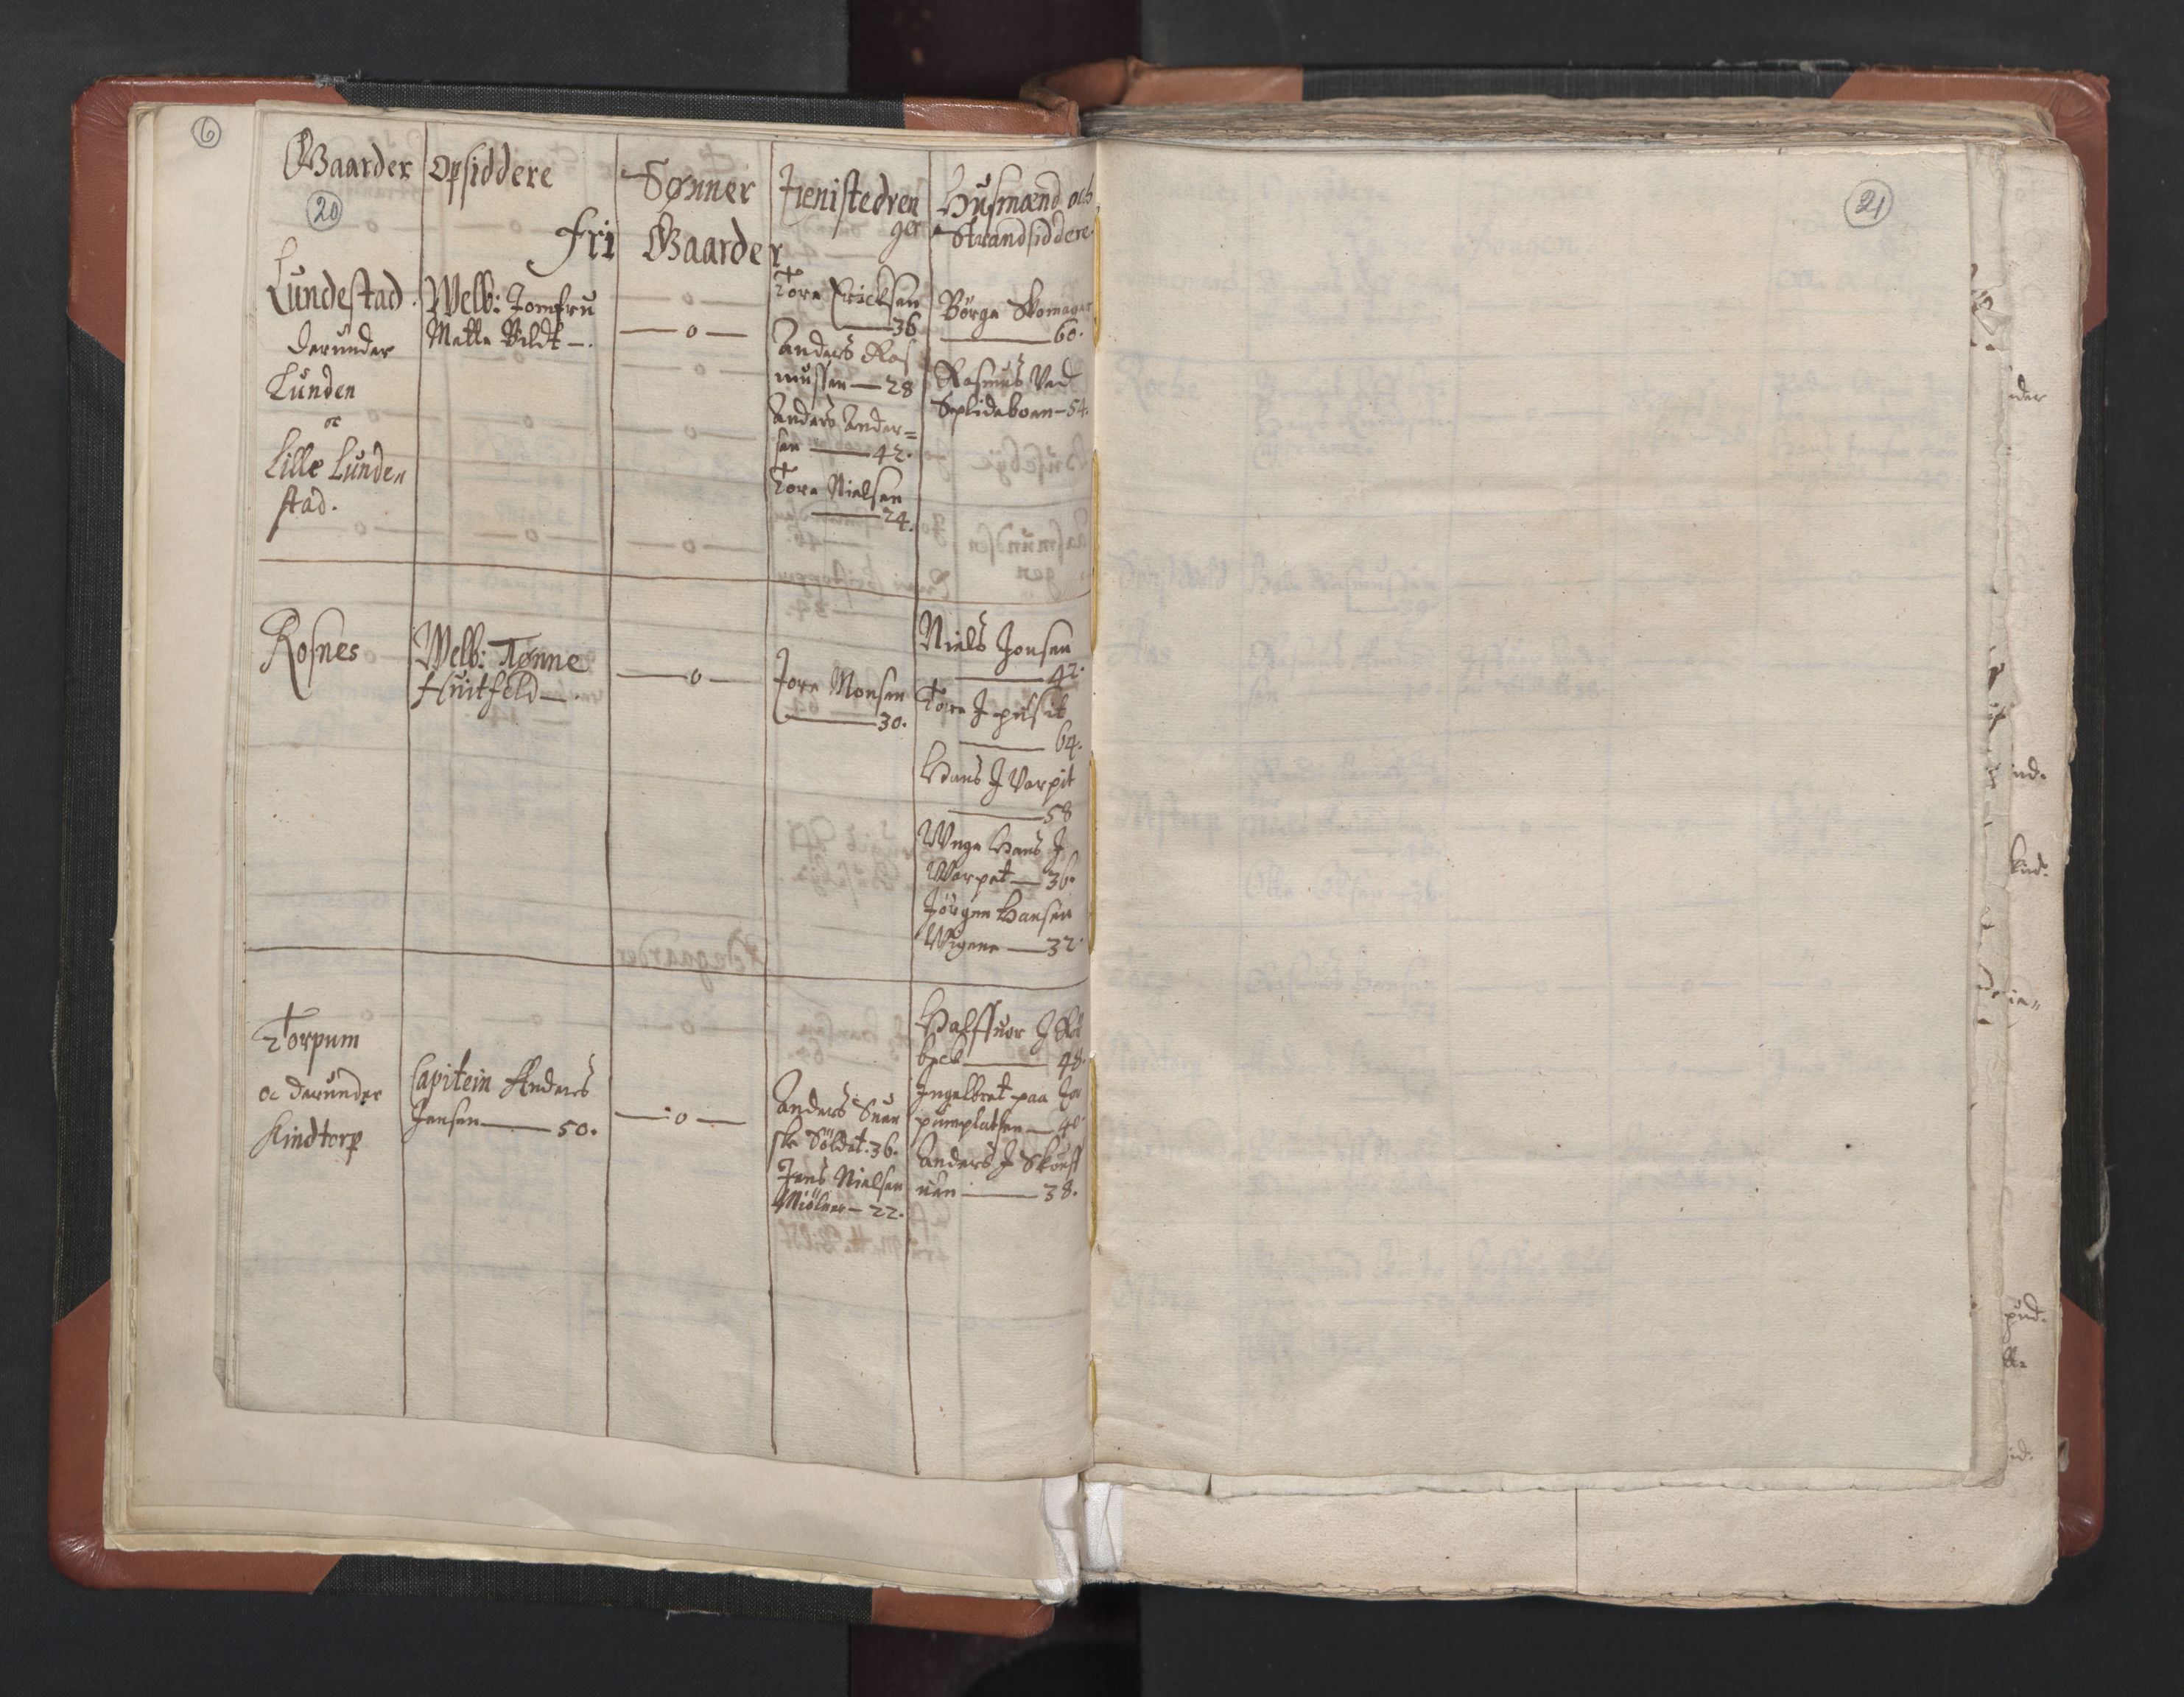 6
Gaarder
Opsiddere
Sønner
Tienistedren
ger
Husmænd och
Strandsiddere.
20
Fri Gaarder
Lundestad.
derunder
Lunden
oc
Lille Lunde
stad.
Welb: Jomfru
Mette Bildt —.
— o —
— o —
— o —
Tore Ericksen
— 36
Anders Ras
mussen — 28
Anders Ander=
sen — 42.
Tore Nielsen
— 24.
Børge Skomager
— 60.
Rasmus Ved
— 54.
Rosnes
Welb: Tønne
Huitfeld —.
— o —
Tore Monsen
— 30.
Niels Jonsen
— 42.
Tore J
— 64.
Hans J Varpit
— 58
Wnge Hans J
Warpet — 36.
Jørgen Hansen
Wigene — 32
Torpum
oc derunder
Kindtorp
Capitein Anders
Jensen — 50.
— : o —
Anders Suen
ske Soldat. 36.
Jens Nielsen
Miölner — 22.
Halffuor J Rø
beck — 48.
Ingelbret paa Tor
pumplatsen — 40
Anders J Skouff
uen — 38.
21